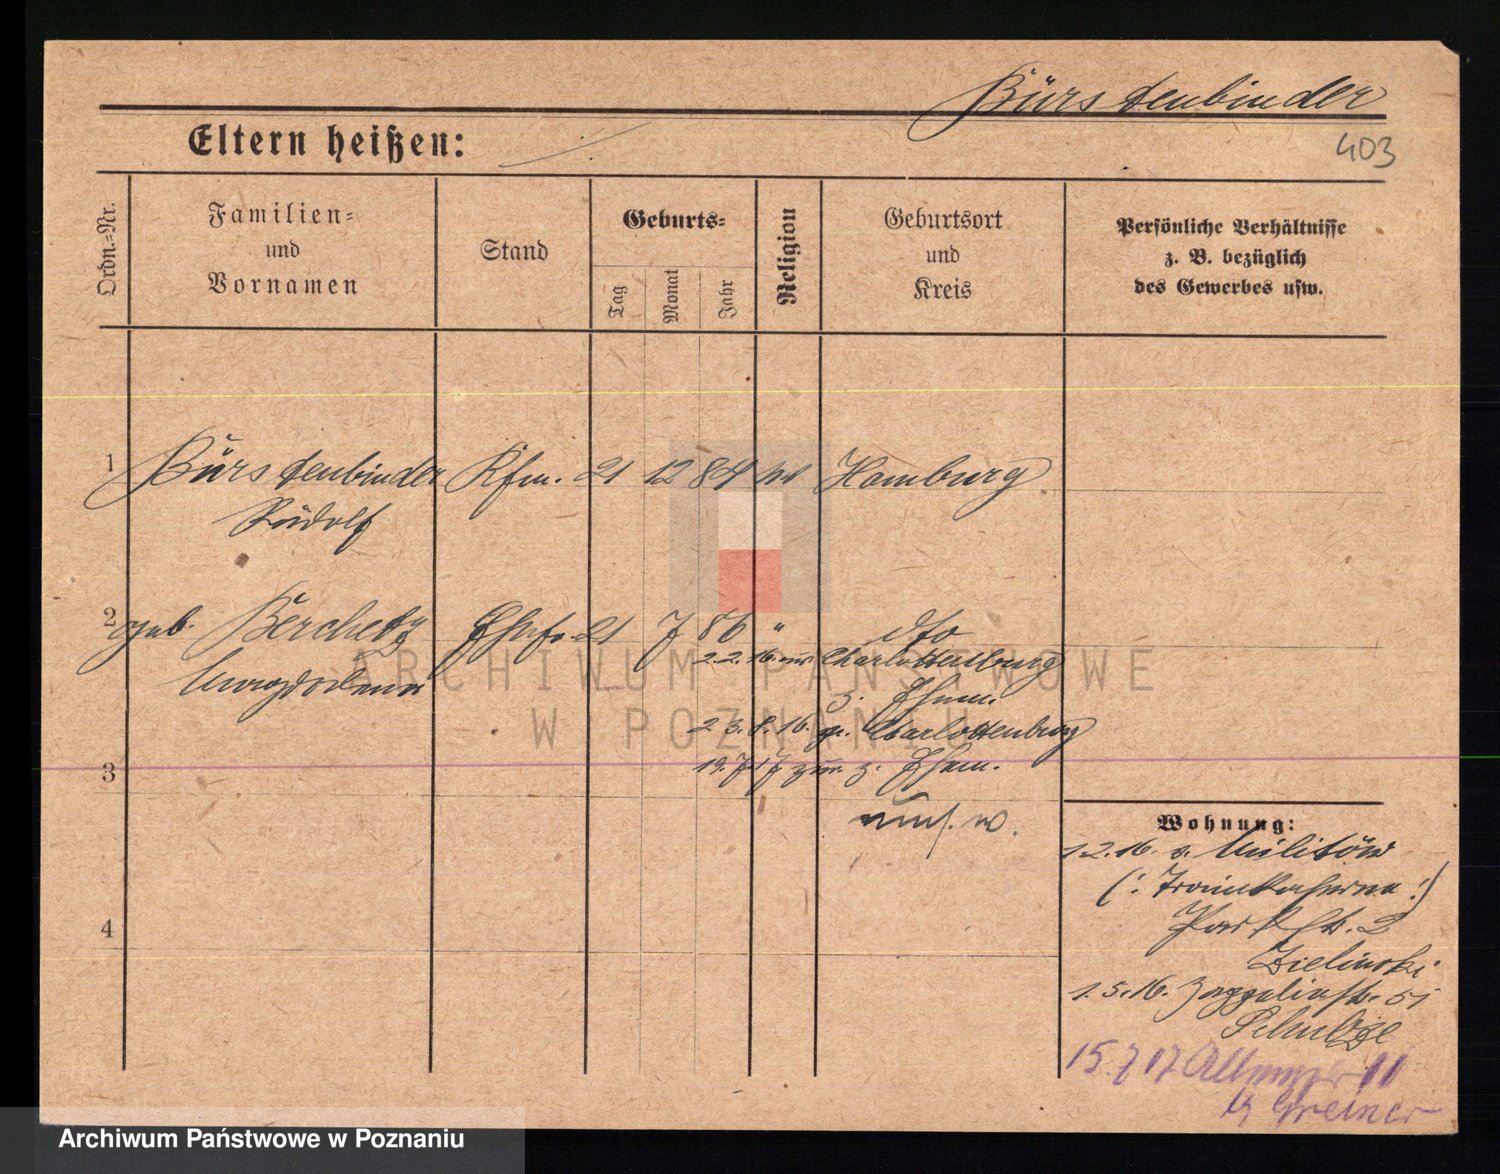 Bürstenbinder
403
Eltern heißen:
Ordn.-Nr.
Familien-
und
Vornamen
Stand
Geburts-
Tag
Monat
Jahr
Religion
Geburtsort
und
Kreis
Persönliche Verhältnisse
z. B. bezüglich
des Gewerbes usw.
1 Bürstenbinder Kfm. 21 12 84 Hamburg
Rudolf
2 geb. Ehefr. 21 7 86 " dto
Magdalena
2.2.16 Charlottenburg
z. Ehem.
23.8.16. Charlottenburg
3
19.7.17 z. Ehem.
4
Wohnung:
1.2.16. v. Militär
(: Trainkaserne :)
Parkstr. 2
Zielinski
1.5.16. Zeppelinstr. 51
Schulze
15.7.17 11
Greiner
ARCHIWUM PAŃSTWOWE
W POZNANIU
Archiwum Państwowe w Poznaniu